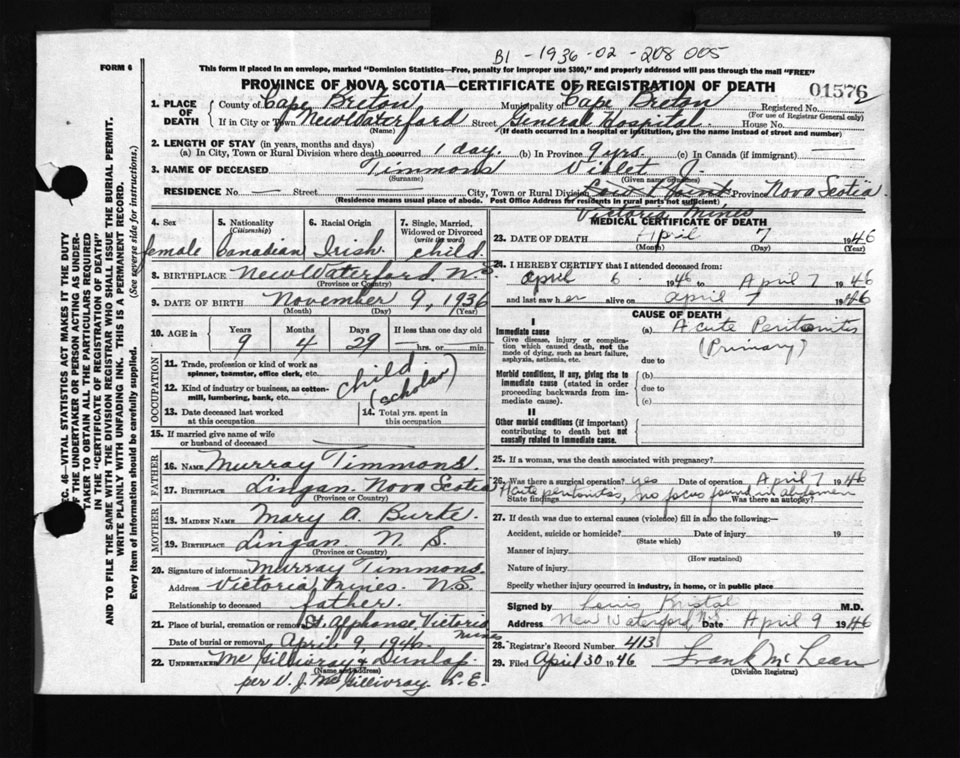 B1 - 1936-02-208 005
FORM 6
This form if placed in an envelope, marked "Dominion Statistics—Free, penalty for improper use $300," and properly addressed will pass through the mail "FREE"
PROVINCE OF NOVA SCOTIA—CERTIFICATE OF REGISTRATION OF DEATH
01576
2
1. PLACE OF DEATH
County of Cape Breton Municipality of Cape Breton Registered No.
(For use of Registrar General only)
If in City or Town New Waterford Street General Hospital House No.
(Name) (If death occurred in a hospital or institution, give the name instead of street and number)
2. LENGTH OF STAY (in years, months and days)
(a) In City, Town or Rural Division where death occurred 1 day. (b) In Province 9 yrs. (c) In Canada (if immigrant) —
3. NAME OF DECEASED Timmons Violet J.
(Surname) (Given name or names)
RESIDENCE No. — Street City, Town or Rural Division Low Point Province Nova Scotia
(Residence means usual place of abode. Post Office Address for residents in rural parts not sufficient)
Victoria Mines
4. Sex
female
5. Nationality
(Citizenship)
Canadian
6. Racial Origin
Irish
7. Single, Married, Widowed or Divorced
(write the word)
child.
8. BIRTHPLACE New Waterford N.S.
(Province or Country)
9. DATE OF BIRTH November 9, 1936
(Month) (Day) (Year)
10. AGE in
Years Months Days If less than one day old
9 4 29 hrs. or min.
OCCUPATION
11. Trade, profession or kind of work as spinner, teamster, office clerk, etc.
12. Kind of industry or business, as cotton-mill, lumbering, bank, etc.
child
(scholar)
13. Date deceased last worked at this occupation
14. Total yrs. spent in this occupation
15. If married give name of wife or husband of deceased —
FATHER
16. NAME Murray Timmons.
17. BIRTHPLACE Lingan. Nova Scotia
MOTHER
18. MAIDEN NAME Mary A. Burke.
19. BIRTHPLACE Lingan N. S.
(Province or Country)
20. Signature of informant Murray Timmons.
Address Victoria Mines N.S.
Relationship to deceased father.
21. Place of burial, cremation or removal St. Alphonse, Victoria Mines
Date of burial or removal April 9, 1946.
22. UNDERTAKER McGillivray & Dunlap.
(Name and address)
per V. J. McGillivray. L. E.
MEDICAL CERTIFICATE OF DEATH
23. DATE OF DEATH April 7 1946
(Month) (Day)
24. I HEREBY CERTIFY that I attended deceased from:
April 6 1946 to April 7 1946
and last saw her alive on April 7 1946
CAUSE OF DEATH
I
Immediate cause
Give disease, injury or complication which caused death, not the mode of dying, such as heart failure, asphyxia, asthenia, etc.
(a) Acute Peritonitis
(Primary)
due to
Morbid conditions, if any, giving rise to immediate cause (stated in order proceeding backwards from immediate cause).
(b)
due to
(c)
II
Other morbid conditions (if important) contributing to death but not causally related to immediate cause.
25. If a woman, was the death associated with pregnancy?
26. Was there a surgical operation? yes Date of operation April 7 1946
State findings Acute peritonitis, no focus found in abdomen Was there an autopsy?
27. If death was due to external causes (violence) fill in also the following:—
Accident, suicide or homicide? Date of injury 19
(State which)
Manner of injury
(How sustained)
Nature of injury
Specify whether injury occurred in industry, in home, or in public place
Signed by Louis Kristal M.D.
Address New Waterford, N.S. Date April 9 1946
28. Registrar's Record Number 413
29. Filed April 30 1946 Frank McLean
(Division Registrar)
SEC. 46—VITAL STATISTICS ACT MAKES IT THE DUTY
OF THE UNDERTAKER OR PERSON ACTING AS UNDER-
TAKER TO OBTAIN ALL THE PARTICULARS REQUIRED
IN THE "CERTIFICATE OF REGISTRATION OF DEATH"
AND TO FILE THE SAME WITH THE DIVISION REGISTRAR WHO SHALL ISSUE THE BURIAL PERMIT.
WRITE PLAINLY WITH UNFADING INK. THIS IS A PERMANENT RECORD.
Every item of information should be carefully supplied. (See reverse side for instructions.)